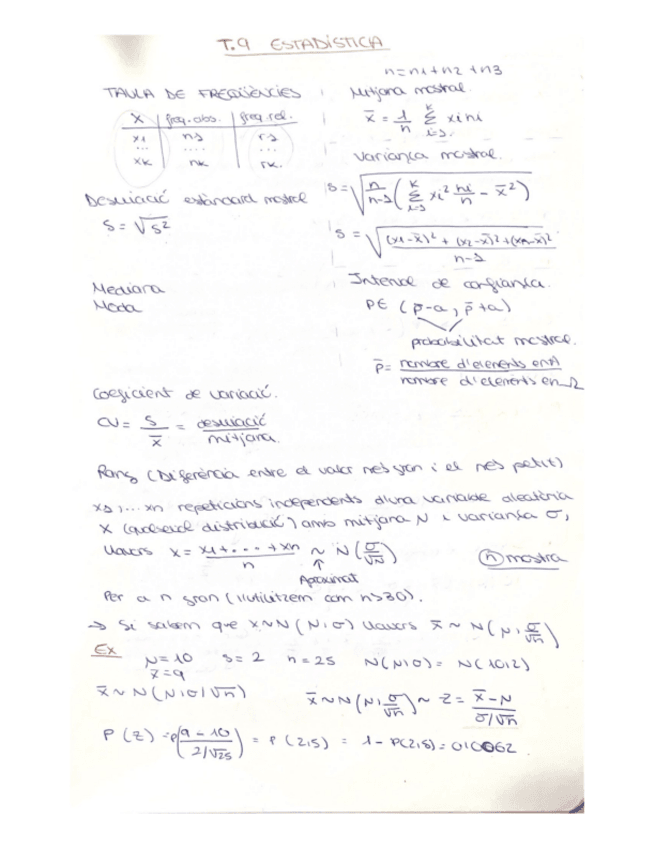 T.9 ESTADÍSTICA
n=n1+n2+n3
TAULA DE FREQÜÈNCIES
X freq.abs. freq.rel.
x1 n1 r1
... .... ...
xk nk rk.
Mitjana mostral.
x̄ = 1/n Σ xini
k
i=1
Variància mostral.
s = √(n/n-1 (Σ xi² ni/n - x̄²))
k
i=1
Desviació estàndard mostral
S = √s²
s = √((x1-x̄)² + (x2-x̄)² + (xn-x̄)² / n-1)
Mediana
Moda
Interval de confiança.
P∈ (p̄-a, p̄+a)
probabilitat mostral.
p̄ = nombre d'elements en A / nombre d'elements en Ω
Coeficient de variació.
CV = S/x̄ = desviació/mitjana
Rang (Diferència entre el valor més gran i el més petit)
x1,... xn repeticions independents d'una variable aleatòria
X (qualsevol distribució) amb mitjana N i variança σ,
llavors x = x1+....+xn / n ~ N(σ/√N)
↑
Aproximat
n mostra
Per a n gran (l'utilitzem com n>30).
→ Si sabem que x~N(N,σ) llavors x̄ ~ N(N, σ/√n)
Ex
N=10 s=2 n=25 N(N,σ) = N(10,2)
x̄=9
x̄~N(N,σ/√n) x̄~N(N, σ/√n) ~ Z = x̄-N / σ/√n
P(Z) = P(9-10 / 2/√25) = P(2,5) = 1-P(2,5) = 0,0062